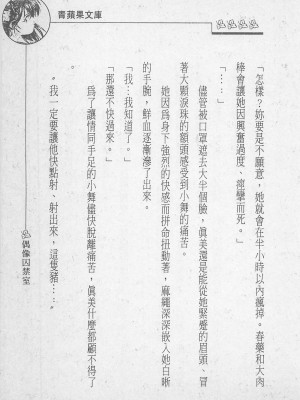 青蘋果文庫
「怎樣？妳要是不願意，她就會在半小時以內瘋掉。春藥和大肉
棒會讓她因興奮過度、痙攣而死。」
「……」
儘管被口罩遮去大半個臉，真美還是能從她緊蹙的眉頭、冒
著大顆淚珠的額頭感受到小舞的痛苦。
她因為身下強烈的快感而拼命扭動著，麻繩深深嵌入她白晰
的手腕，鮮血逐漸滲了出來。
「我…我知道了。」
「那還不快過來。」
為了讓情同手足的小舞儘快脫離痛苦，真美什麼都顧不得了
。
〝我一定要讓他快點射、射出來，這隻豬……〞
偶像囚禁室